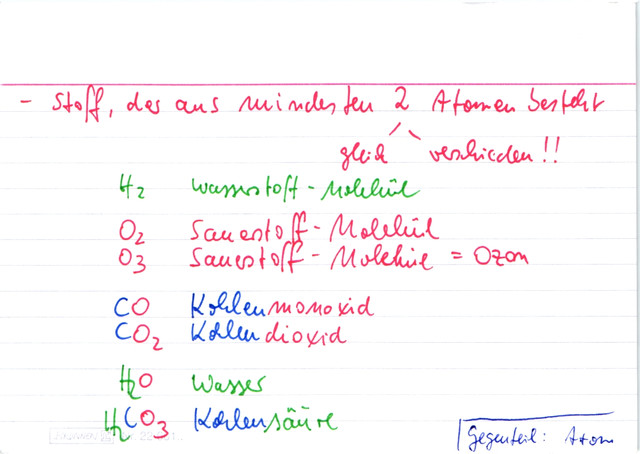 - Stoff, der aus mindesten 2 Atomen besteht
gleich verschieden!!
H2 Wasserstoff-Molekül
O2 Sauerstoff-Molekül
O3 Sauerstoff-Moleküle = Ozon
CO Kohlenmonoxid
CO2 Kohlendioxid
H2O Wasser
H2CO3 Kohlensäure
Gegenteil: Atom